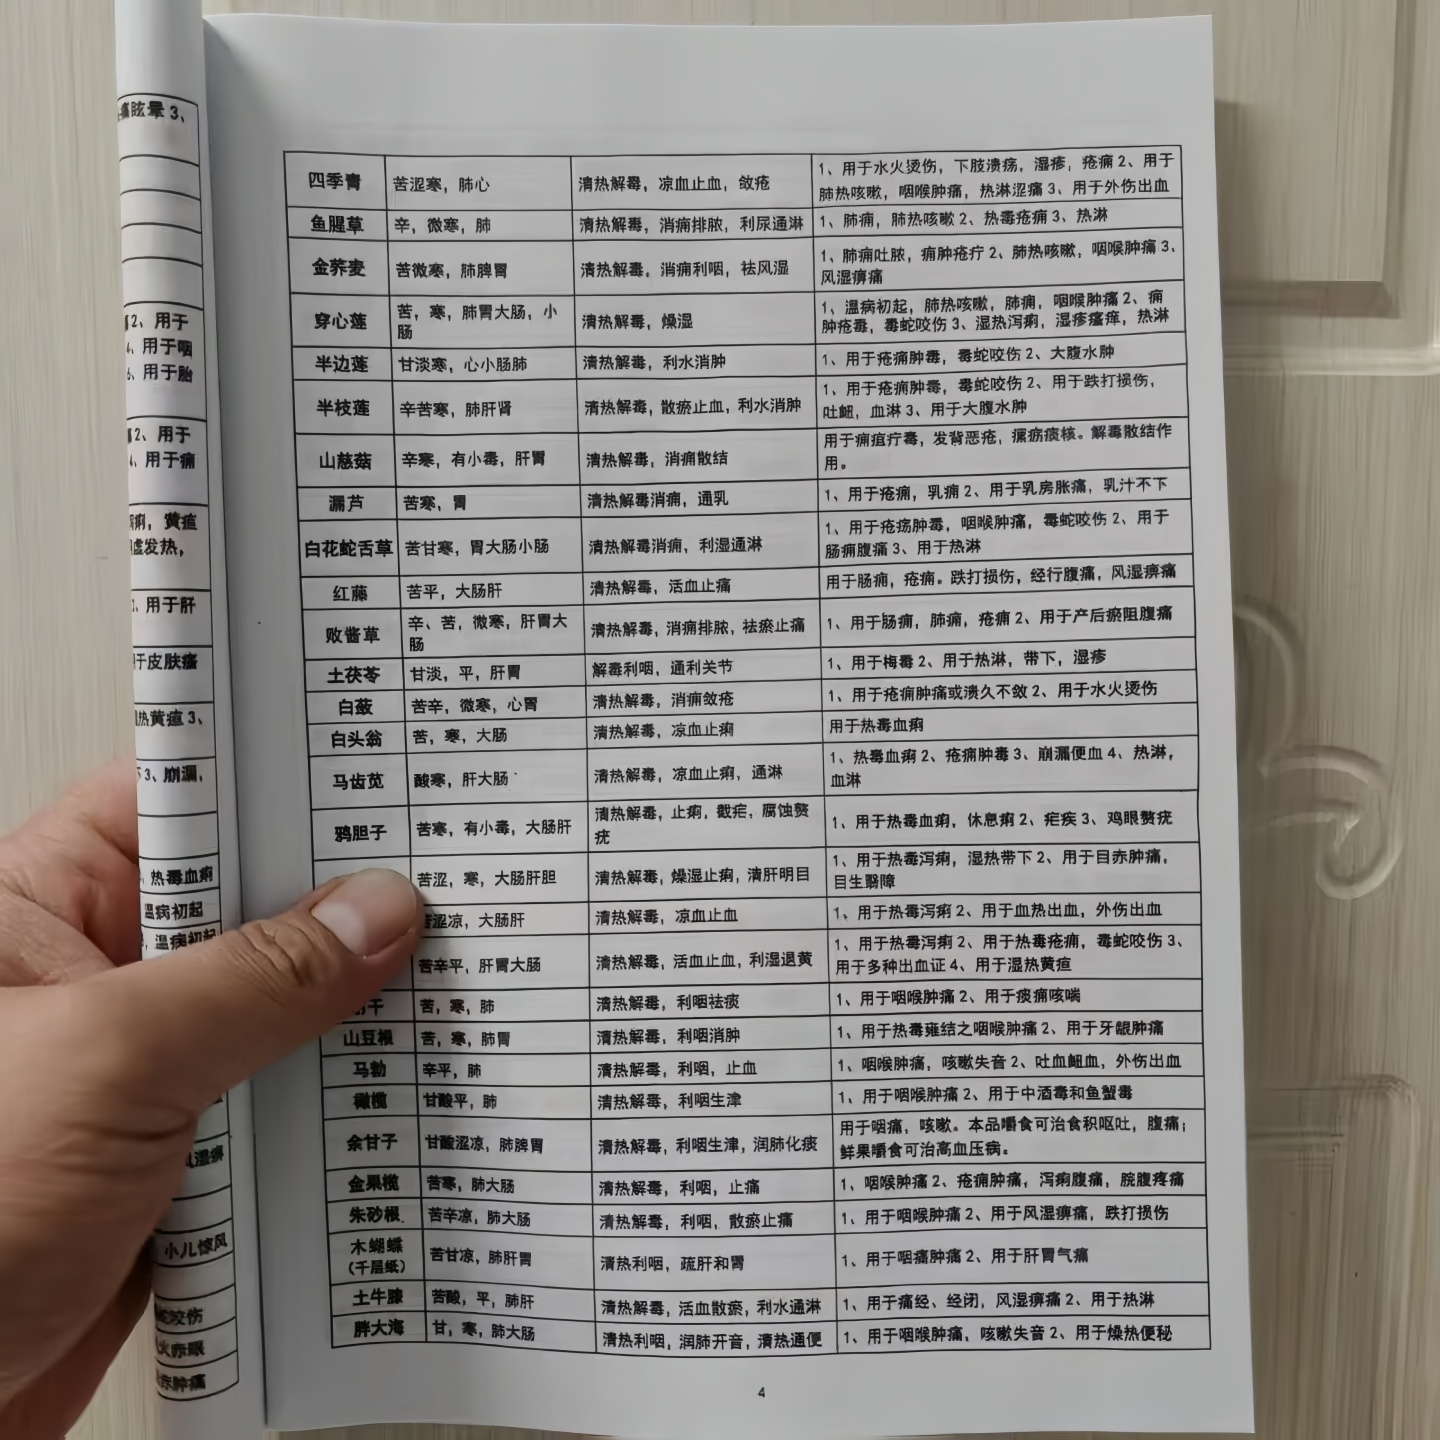 痛眩晕 3、
2、用于
4、用于咽
6、用于胎
2、用于
4、用于痈
痢，黄疸
虚发热，
、用于肝
于皮肤瘙
热黄疸 3、
3、崩漏，
、热毒血痢
温病初起
，温病初起
风湿痹
小儿惊风
蛇咬伤
火赤眼
赤肿痛
四季青 苦涩寒，肺心 清热解毒，凉血止血，敛疮 1、用于水火烫伤，下肢溃疡，湿疹，疮痈 2、用于
肺热咳嗽，咽喉肿痛，热淋涩痛 3、用于外伤出血
鱼腥草 辛，微寒，肺 清热解毒，消痈排脓，利尿通淋 1、肺痈，肺热咳嗽 2、热毒疮痈 3、热淋
金荞麦 苦微寒，肺脾胃 清热解毒，消痈利咽，祛风湿 1、肺痈吐脓，痈肿疮疖 2、肺热咳嗽，咽喉肿痛 3、
风湿痹痛
穿心莲 苦，寒，肺胃大肠，小
肠 清热解毒，燥湿 1、温病初起，肺热咳嗽，肺痈，咽喉肿痛 2、痈
肿疮毒，毒蛇咬伤 3、湿热泻痢，湿疹瘙痒，热淋
半边莲 甘淡寒，心小肠肺 清热解毒，利水消肿 1、用于疮痈肿毒，毒蛇咬伤 2、大腹水肿
半枝莲 辛苦寒，肺肝肾 清热解毒，散瘀止血，利水消肿 1、用于疮痈肿毒，毒蛇咬伤 2、用于跌打损伤，
吐衄，血淋 3、用于大腹水肿
山慈菇 辛寒，有小毒，肝胃 清热解毒，消痈散结 用于痈疽疔毒，发背恶疮，瘰疬痰核。解毒散结作
用。
漏芦 苦寒，胃 清热解毒消痈，通乳 1、用于疮痈，乳痈 2、用于乳房胀痛，乳汁不下
白花蛇舌草 苦甘寒，胃大肠小肠 清热解毒消痈，利湿通淋 1、用于疮疡肿毒，咽喉肿痛，毒蛇咬伤 2、用于
肠痈腹痛 3、用于热淋
红藤 苦平，大肠肝 清热解毒，活血止痛 用于肠痈，疮痈。跌打损伤，经行腹痛，风湿痹痛
败酱草 辛、苦，微寒，肝胃大
肠 清热解毒，消痈排脓，祛瘀止痛 1、用于肠痈，肺痈，疮痈 2、用于产后瘀阻腹痛
土茯苓 甘淡，平，肝胃 解毒利咽，通利关节 1、用于梅毒 2、用于热淋，带下，湿疹
白蔹 苦辛，微寒，心胃 清热解毒，消痈敛疮 1、用于疮痈肿痛或溃久不敛 2、用于水火烫伤
白头翁 苦，寒，大肠 清热解毒，凉血止痢 用于热毒血痢
马齿苋 酸寒，肝大肠 清热解毒，凉血止痢，通淋 1、热毒血痢 2、疮痈肿毒 3、崩漏便血 4、热淋，
血淋
鸦胆子 苦寒，有小毒，大肠肝 清热解毒，止痢，截疟，腐蚀赘
疣 1、用于热毒血痢，休息痢 2、疟疾 3、鸡眼赘疣
苦涩，寒，大肠肝胆 清热解毒，燥湿止痢，清肝明目 1、用于热毒泻痢，湿热带下 2、用于目赤肿痛，
目生翳障
苦涩凉，大肠肝 清热解毒，凉血止血 1、用于热毒泻痢 2、用于血热出血，外伤出血
苦辛平，肝胃大肠 清热解毒，活血止血，利湿退黄 1、用于热毒泻痢 2、用于热毒疮痈，毒蛇咬伤 3、
用于多种出血证 4、用于湿热黄疸
干 苦，寒，肺 清热解毒，利咽祛痰 1、用于咽喉肿痛 2、用于痰痈咳喘
山豆根 苦，寒，肺胃 清热解毒，利咽消肿 1、用于热毒雍结之咽喉肿痛 2、用于牙龈肿痛
马勃 辛平，肺 清热解毒，利咽，止血 1、咽喉肿痛，咳嗽失音 2、吐血衄血，外伤出血
橄榄 甘酸平，肺 清热解毒，利咽生津 1、用于咽喉肿痛 2、用于中酒毒和鱼蟹毒
余甘子 甘酸涩凉，肺脾胃 清热解毒，利咽生津，润肺化痰 用于咽痛，咳嗽。本品嚼食可治食积呕吐，腹痛；
鲜果嚼食可治高血压病。
金果榄 苦寒，肺大肠 清热解毒，利咽，止痛 1、咽喉肿痛 2、疮痈肿痛，泻痢腹痛，脘腹疼痛
朱砂根 苦辛凉，肺大肠 清热解毒，利咽，散瘀止痛 1、用于咽喉肿痛 2、用于风湿痹痛，跌打损伤
木蝴蝶
（千层纸） 苦甘凉，肺肝胃 清热利咽，疏肝和胃 1、用于咽痛肿痛 2、用于肝胃气痛
土牛膝 苦酸，平，肺肝 清热解毒，活血散瘀，利水通淋 1、用于痛经、经闭，风湿痹痛 2、用于热淋
胖大海 甘，寒，肺大肠 清热利咽，润肺开音，清热通便 1、用于咽喉肿痛，咳嗽失音 2、用于燥热便秘
4